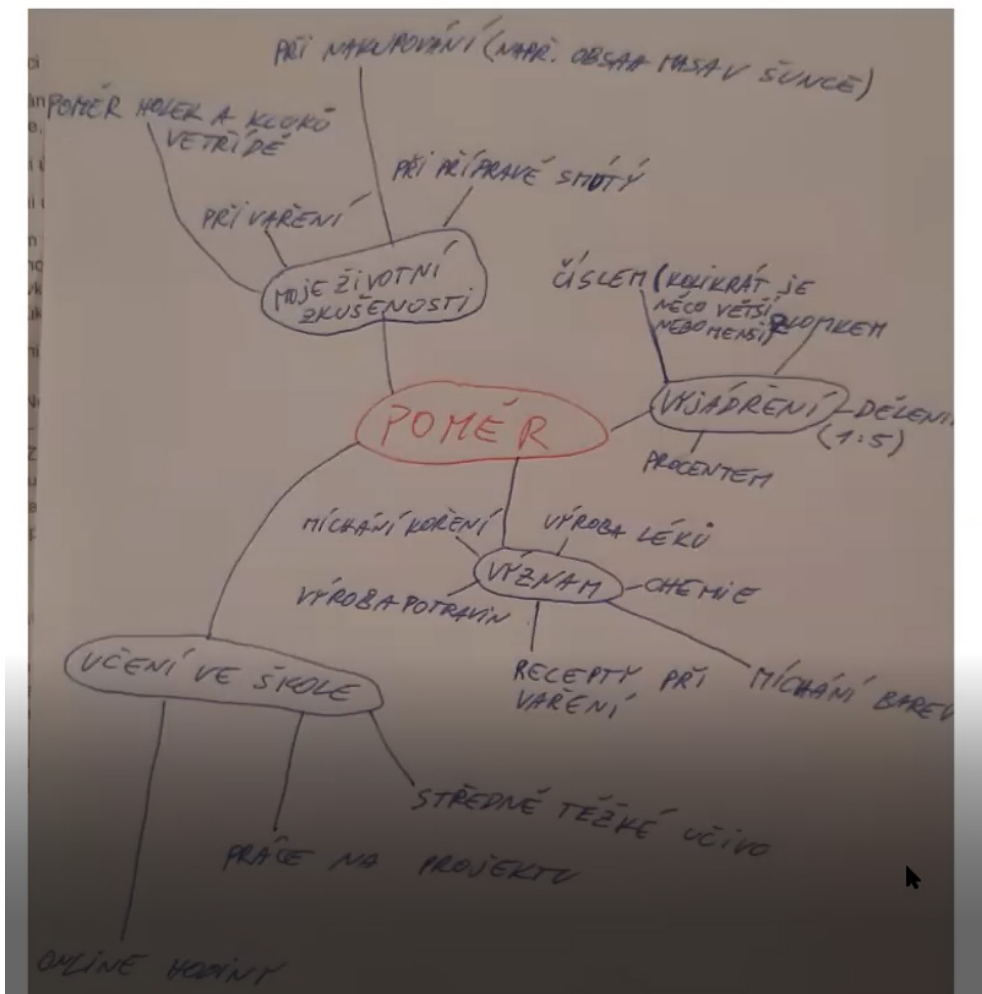 PŘI NAKUPOVÁNÍ (NAPŘ. OBSAH MASA V ŠUNCE)
POMĚR HOLEK A KLUKŮ
VE TŘÍDĚ
PŘI PŘÍPRAVĚ SMŮTÝ
PŘI VAŘENÍ
MOJE ŽIVOTNÍ
ZKUŠENOSTI
ČÍSLEM (KOLIKRÁT JE
NĚCO VĚTŠÍ
NEBO MENŠÍ)
ZLOMKEM
VYJÁDŘENÍ
DĚLENÍ
(1:5)
PROCENTEM
POMĚR
MÍCHÁNÍ KOŘENÍ
VÝROBA LÉKŮ
VÝZNAM
CHEMIE
VÝROBA POTRAVIN
RECEPTY PŘI
VAŘENÍ
MÍCHÁNÍ BAREV
UČENÍ VE ŠKOLE
STŘEDNĚ TĚŽKÉ UČIVO
PRÁCE NA PROJEKTU
ONLINE HODINY